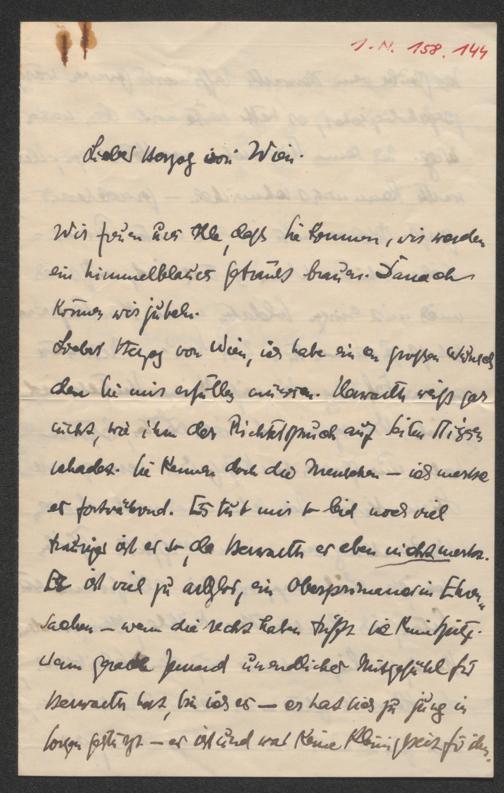 J. N. 158.144
Lieber Herzog von Wien.
Wir freuen uns Alle, daß Sie kommen, wir werden
ein himmelblaues Getränk brauen. Danach
können wir jubeln.
Lieber Herzog von Wien, ich habe einen großen Wunsch
den Sie mir erfüllen müssen. Herwarth weiß gar
nicht, wie ihm der Richterspruch auf
schadet. Sie kennen doch die Menschen – ich merke
es fortwährend. Es tut mir so leid und viel
trauriger ist es so, da Herwarth es eben nicht merkt.
Er ist viel zu arglos, ein Oberprimaner in Ehren-
sachen – wenn die recht haben trifft sie
Wenn gerade Jemand unendliches Mitgefühl für
Herwarth hat, bin ich es – er hat sich zu jung in
Sorgen gestürzt – es ist und war keine Kleinigkeit für den